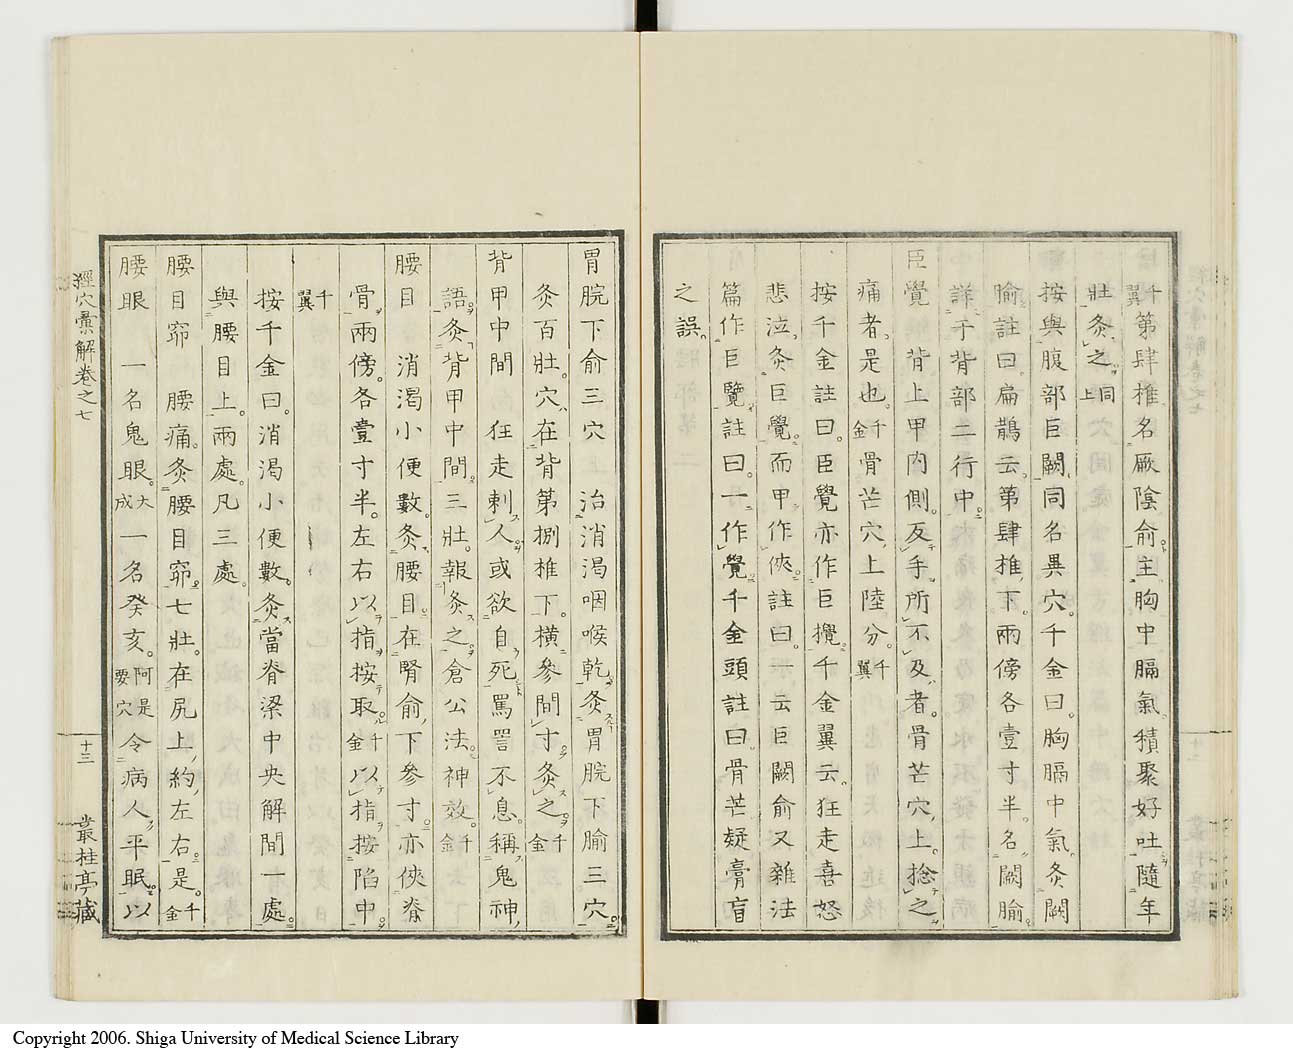 千翼第肆椎名厥陰俞主胸中膈氣積聚好吐隨年
壯灸之同上
按與腹部巨闕同名異穴千金曰胸膈中氣灸闕
腧註曰扁鵲云第肆椎下兩傍各壹寸半名闕腧
詳于背部二行中
臣覺 背上甲内側反手所不及者骨芒穴上捻之
痛者是也千金骨芒穴上陸分千翼
按千金註曰臣覺亦作巨攪千金翼云狂走喜怒
悲泣灸巨覺而甲作俠註曰一云巨闕俞又雜法
篇作巨覽註曰一作覺千金頭註曰骨芒疑膏肓
之誤
胃脘下俞三穴 治消渇咽喉乾灸胃脘下腧三穴
灸百壯穴在背第捌椎下横參間寸灸之千金
背甲中間 狂走刺人或欲自死罵詈不息稱鬼神
語灸背甲中間三壯報灸之倉公法神效千金
腰目 消渇小便數灸腰目在腎俞下參寸亦俠脊
骨兩傍各壹寸半左右以指按取千金以指按陷中
千翼
按千金曰消渇小便數灸當脊梁中央解間一處
與腰目上兩處凡三處
腰目窌 腰痛灸腰目窌七壯在尻上約左右是千金
腰眼 一名鬼眼大成一名癸亥阿是要穴令病人平眠以
經穴彙解卷之七
十三
叢桂亭藏
Copyright 2006. Shiga University of Medical Science Library